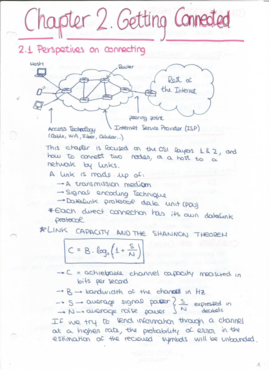 Chapter 2. Getting Connected
2.1 Perspectives on connecting
Hosts
Router
Rest of
the Internet
peering point
Access Technology
Internet Service Provider (ISP)
This chapter is focused on the OSI layers 1 & 2, and
how to connect two nodes, or a host to a
network by links.
A link is made up of:
→ A transmission medium
→ Signal encoding technique
→ Datalink protocol data unit (PDU)
* Each direct connection has its own datalink
protocol
* LINK CAPACITY AND THE SHANNON THEOREM
C = B · log₂ (1 + S/N)
→ C = achievable channel capacity measured in
bits per second
→ B → bandwidth of the channel in Hz
→ S → average signal power } S/N expressed in
→ N → average noise power } decibels
If we try to send information through a channel
at a higher rate, the probability of error in the
estimation of the recieved symbols will be unbounded.